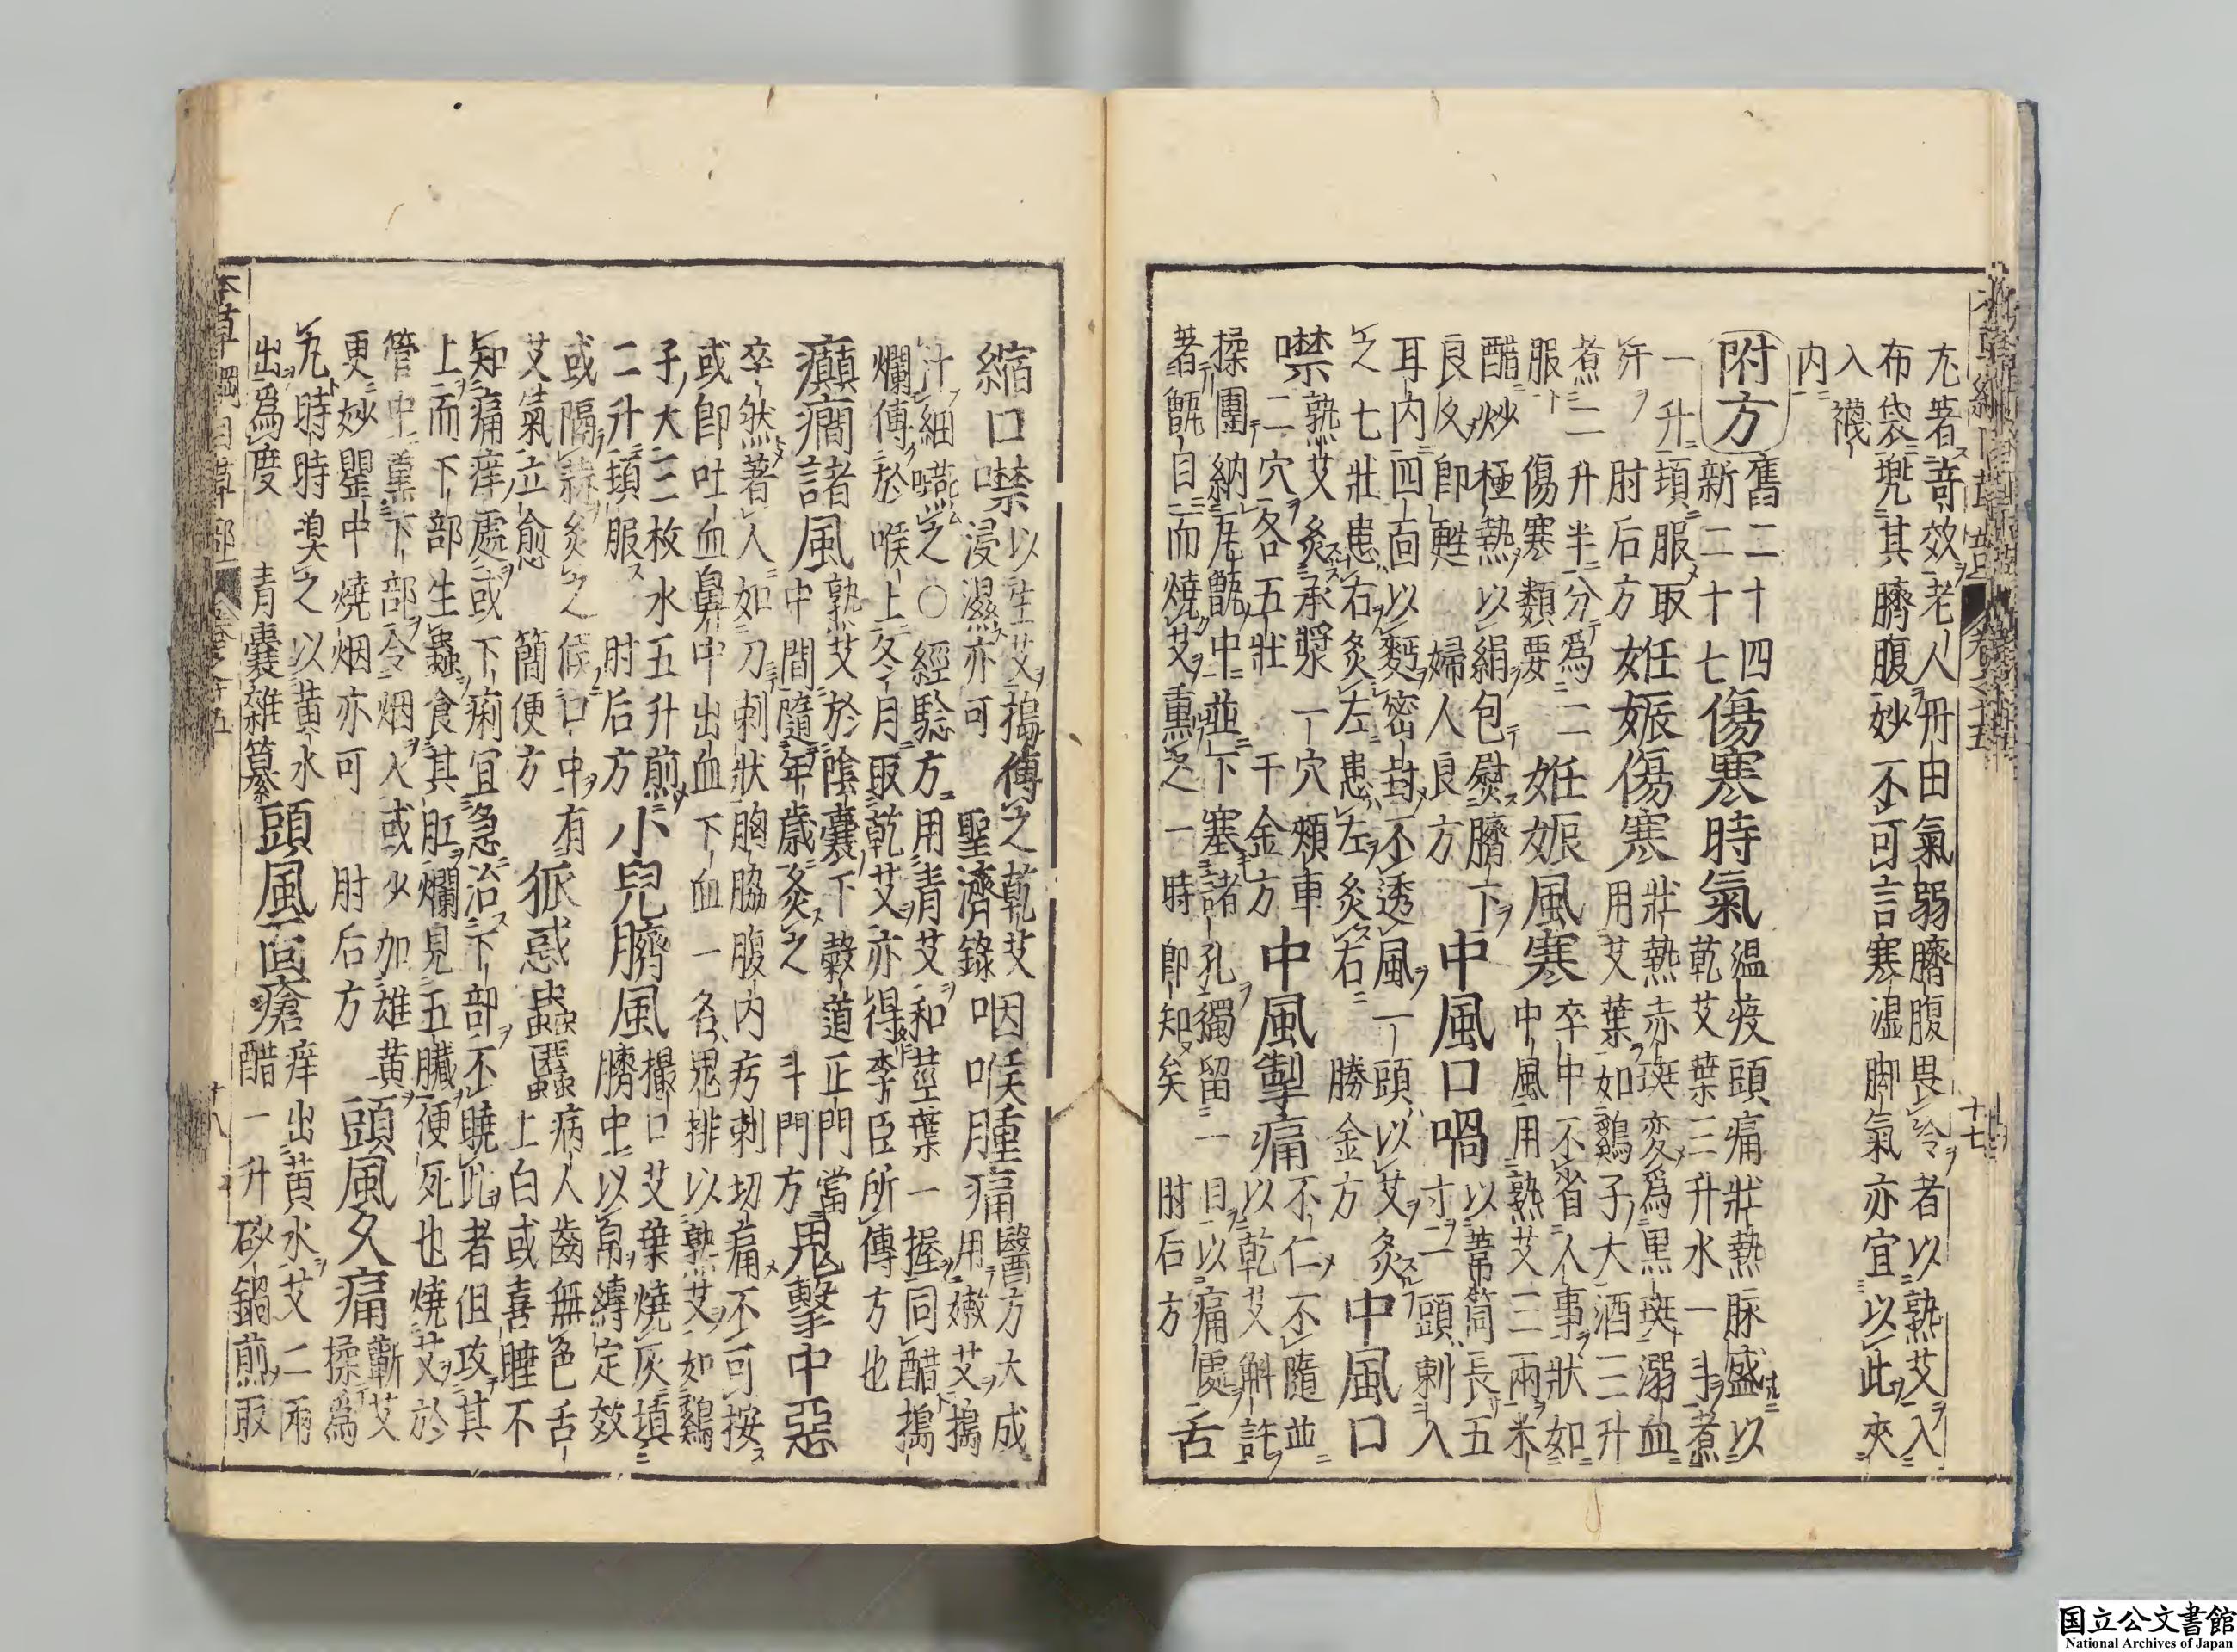 本草綱目草部 卷之十五 十七
尤著奇效老人丹田氣弱臍腹畏冷者以熟艾入
布袋兜其臍腹妙不可言寒湿脚氣亦宜以此夾
入襪
内
附方 舊二十四 新二十七 傷寒時氣 温疫頭痛壯熱脉盛以 乾艾葉三升水一斗煮
一升頓服取 汗 肘后方 妊娠傷寒 壯熱赤斑変爲黒斑溺血 用艾葉如鷄子大酒三升
煮二升半分爲二 服 傷寒類要 妊娠風寒 卒中不省人事狀如 中風用熟艾三兩米
醋炒極熱以絹包熨臍下 良久即甦 婦人良方 中風口喎 以葦筒長五 寸一頭刺入
耳内四面以麪密封不透風一頭以艾灸 之七壯患右灸左患左灸右 勝金方 中風口
噤 熟艾灸承漿一穴頰車 二穴各五壯 千金方 中風掣痛 不仁不隨並 以乾艾斛許
揉團納瓦甑中並下塞諸孔獨留一目以痛處 著甑目而焼艾熏之一時即知矣 肘后方 舌
縮口噤 以生艾搗傅之乾艾 浸濕亦可 聖濟錄 咽喉腫痛 醫方大成 用嫩艾搗
汁細嚥之○經驗方用青艾和莖葉一握同醋搗 爛傅於喉上冬月取乾艾亦得李臣所傳方也
癲癇諸風 熟艾於陰囊下穀道正門當 中間隨年歲灸之 斗門方 鬼擊中惡
卒然著人如刀刺狀胸脇腹内㽲刺切痛不可按 或即吐血鼻中出血下血一名鬼排以熟艾如鷄
子大三枚水五升煎 二升頓服 肘后方 小兒臍風 撮口艾葉焼灰填 臍中以帛縛定效
或隔蒜灸之候口中有 艾氣立愈 簡便方 狐惑蟲䘌 病人齒無色舌 上白或喜睡不
知痛痒處或下痢宜急治下部不曉此者但攻其 上而下部生蟲食其肛爛見五臟便死也焼艾於
管中熏下部令烟入或少加雄黄 更妙罌中焼烟亦可 肘后方 頭風久痛 蘄艾 揉爲
丸時時嗅之以黄水 出爲度 青囊雜纂 頭風面瘡 痒出黄水艾二兩 醋一升砂鍋煎取
本草綱目草部 卷之十五 十八
国立公文書館
National Archives of Japan